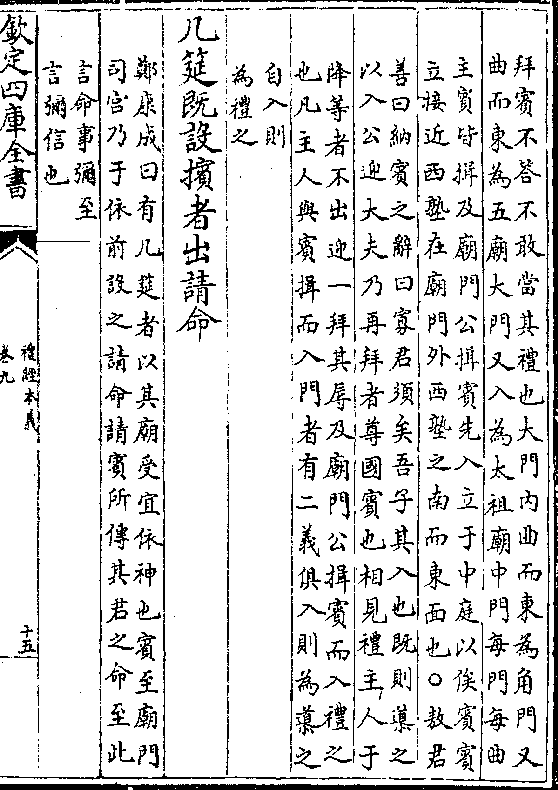 拜賓不答不敢當其禮也大門内曲而東為角門又
曲而東為五廟大門又入為太祖廟中門每門每曲
主賓皆揖及廟門公揖賓先入立于中庭以俟賓賓
立接近西塾在廟門外西塾之南而東面也○敖君
善曰納賓之辭曰寡君須矣吾子其入也既則導之
以入公迎大夫乃再拜者尊國賓也相見禮主人于
降等者不出迎一拜其辱及廟門公揖賓而入禮之
也凡主人與賓揖而入門者有二義俱入則為導之
自入則
為禮之
几筵既設擯者出請命
鄭康成曰有几筵者以其廟受宜依神也賓至廟門
司宮乃于依前設之請命請賓所傳其君之命至此
言命事彌至
言彌信也
欽定四庫全書
禮經本義
卷九
十五